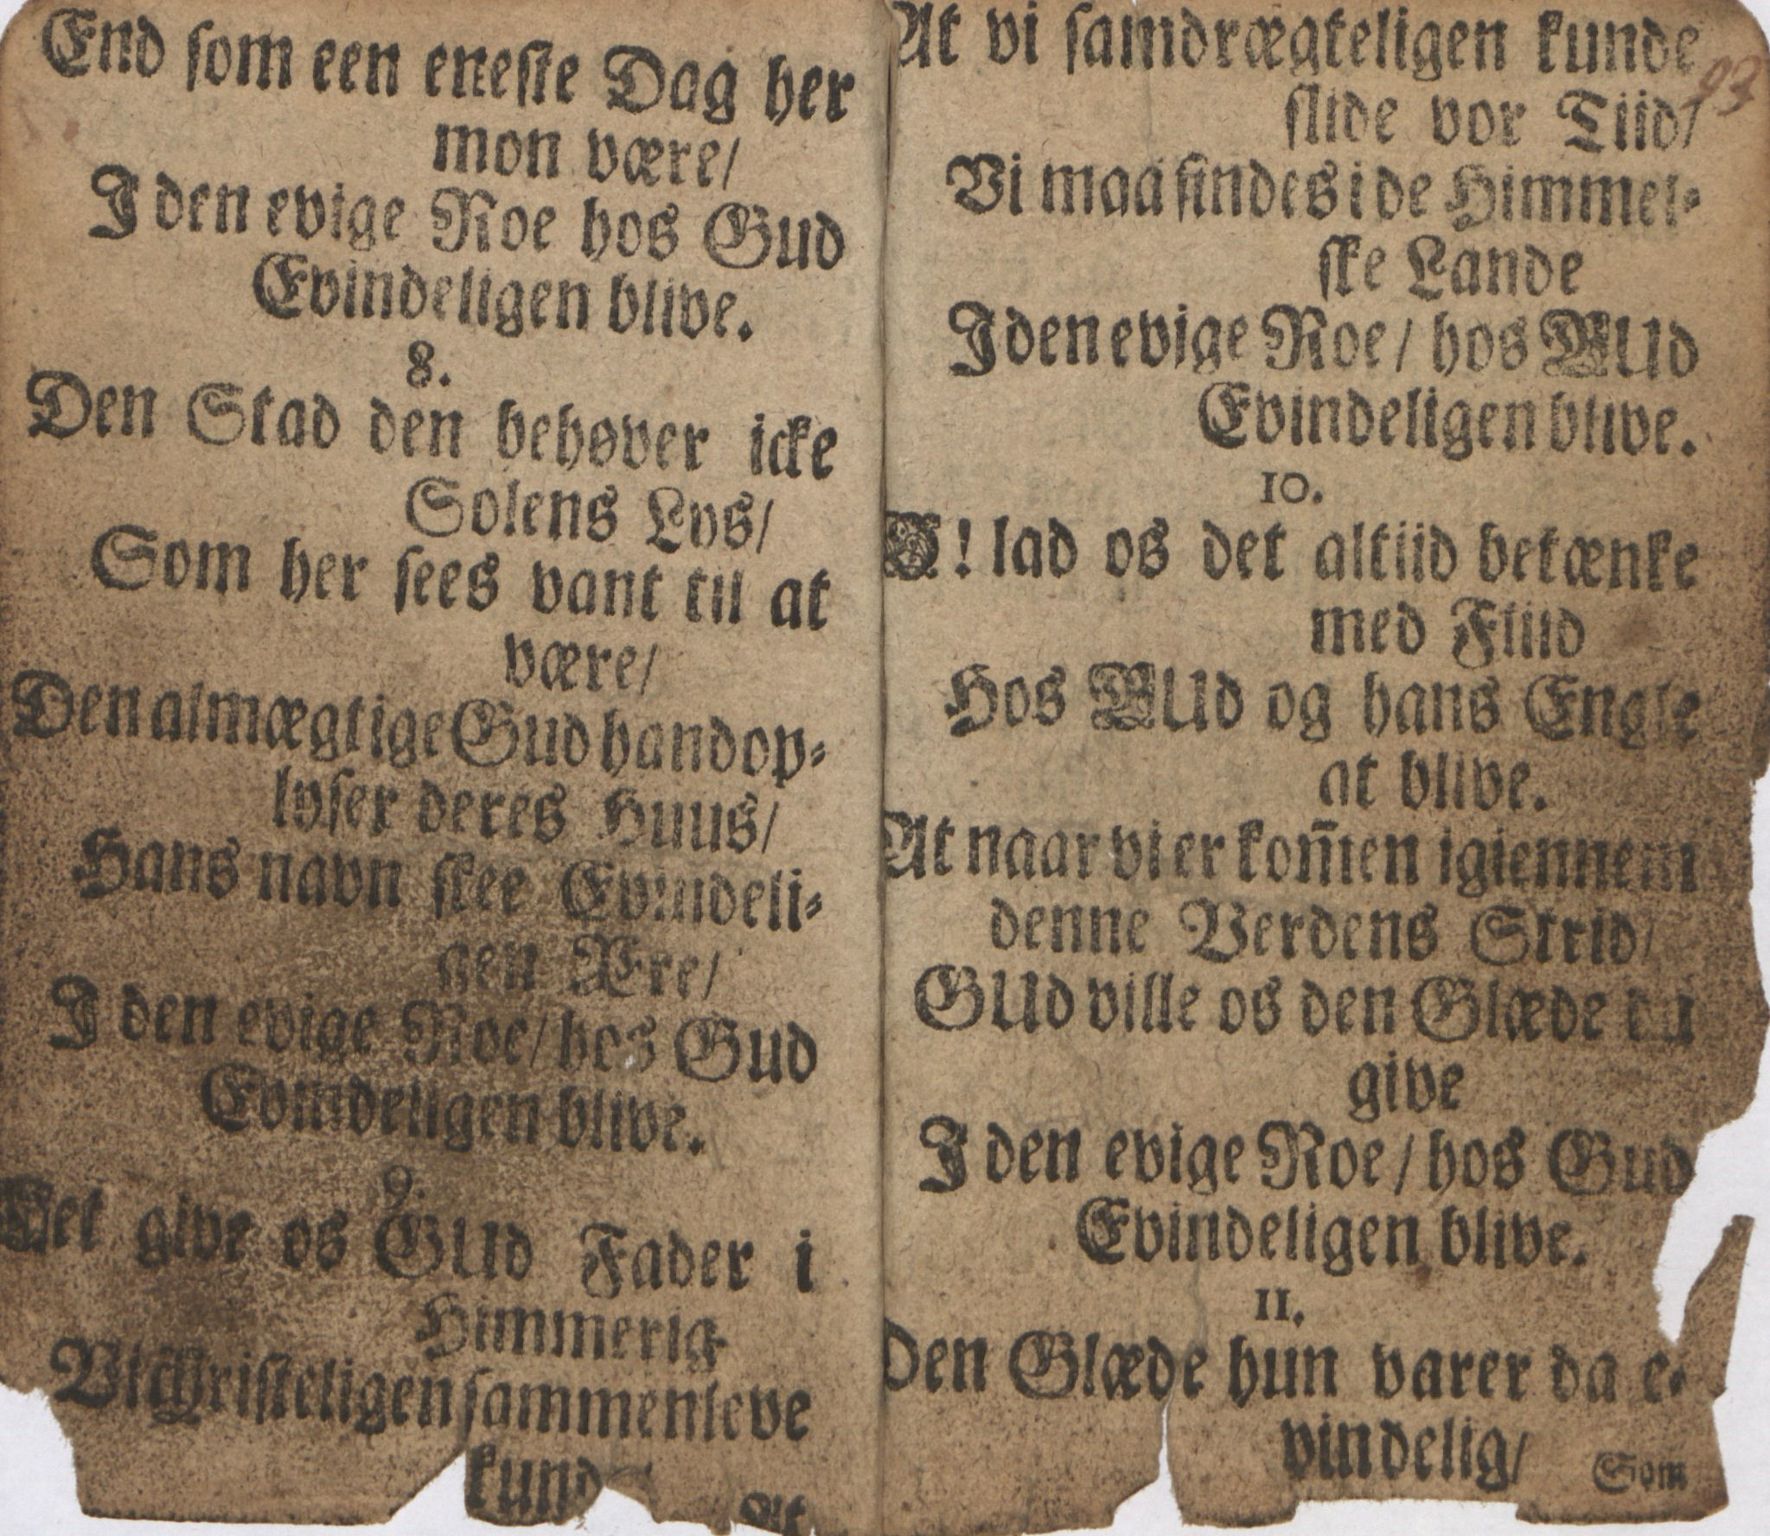 End som een eneste Dag her
mon være/
I den evige Roe hos Gud
Evindeligen blive.
8.
Den Stad den behøver icke
Solens Lys/
Som her sees vant til at
være/
Den almægtige Gud hand op-
lyser deres Huus/
Hans navn skee Evindeli-
gen Ære/
I den evige Roe/ hos Gud
Evindeligen blive.
9.
Det give os GUd Fader i
Himmerig
Vi Christeligen sammen leve
kund
At
At vi samdrægteligen kunde
slide vor Tiid/
Vi maa findes i de Himmel-
ske Lande
I den evige Roe/ hos GUd
Evindeligen blive.
10.
O! lad os det altiid betænke
med Fliid
Hos GUd og hans Engle
at blive.
At naar vi er kom̅en igiennem
denne Verdens Strid/
GUd ville os den Glæde da
give
I den evige Roe/ hos Gud
Evindeligen blive.
11.
Den Glæde hun varer da e-
vindelig/
Som
93